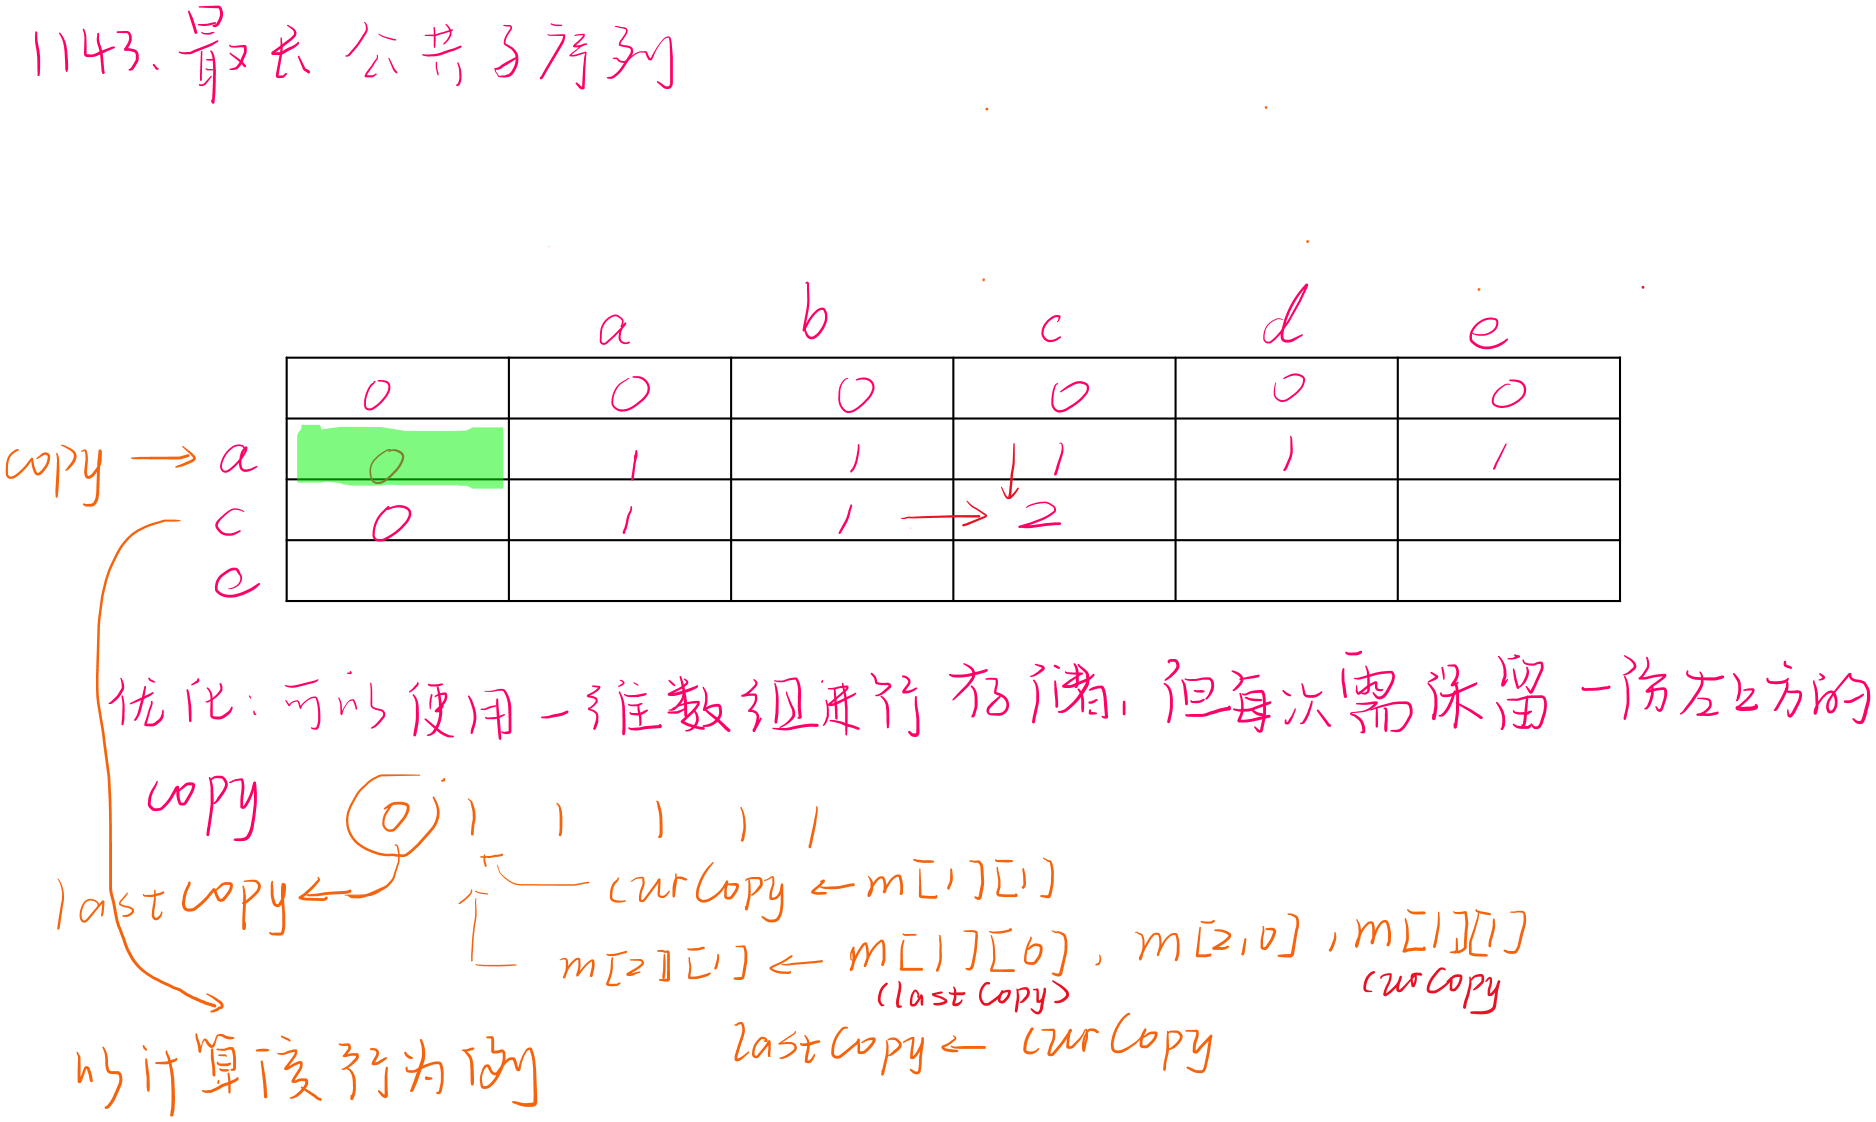 1143、最长公共子序列
a b c d e
0 0 0 0 0 0
copy → a 0 1 1 1 1 1
c 0 1 1 → 2
e
优化：可以使用一维数组进行存储，但每次需保留一份左上方的
copy
0 1 1 1 1 1
lastcopy ← curCopy ← m[1][1]
m[2][1] ← m[1][0], m[2,0], m[1][1]
(lastCopy) curCopy
lastCopy ← curCopy
以计算该行为例